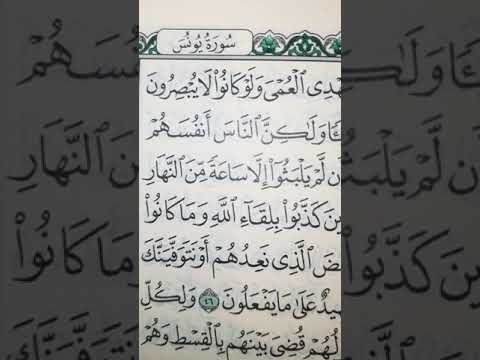 سُورَةُ يُونُسَ
هْدِى ٱلْعُمْىَ وَلَوْ كَانُوا۟ لَا يُبْصِرُونَ
ـًٔا وَلَٰكِنَّ ٱلنَّاسَ أَنفُسَهُمْ
ن لَّمْ يَلْبَثُوٓا۟ إِلَّا سَاعَةً مِّنَ ٱلنَّهَارِ
ينَ كَذَّبُوا۟ بِلِقَآءِ ٱللَّهِ وَمَا كَانُوا۟
ضَ ٱلَّذِى نَعِدُهُمْ أَوْ نَتَوَفَّيَنَّكَ
يدٌ عَلَىٰ مَا يَفْعَلُونَ ٤٦ وَلِكُلِّ
لُهُمْ قُضِىَ بَيْنَهُم بِٱلْقِسْطِ وَهُمْ